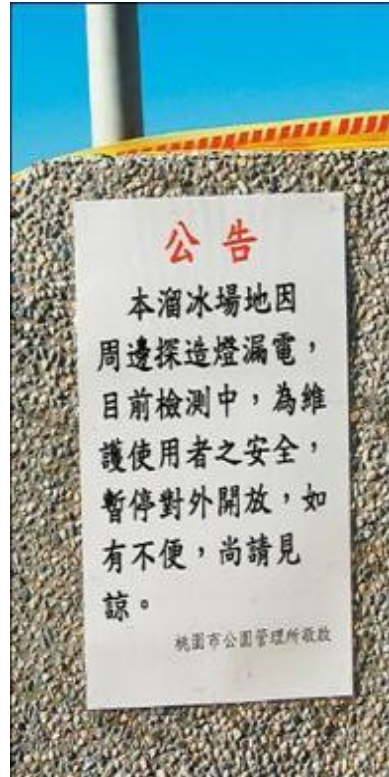 公告
本溜冰場地因
周邊探造燈漏電，
目前檢測中，為維
護使用者之安全，
暫停對外開放，如
有不便，尚請見
諒。
桃園市公園管理所敬啟